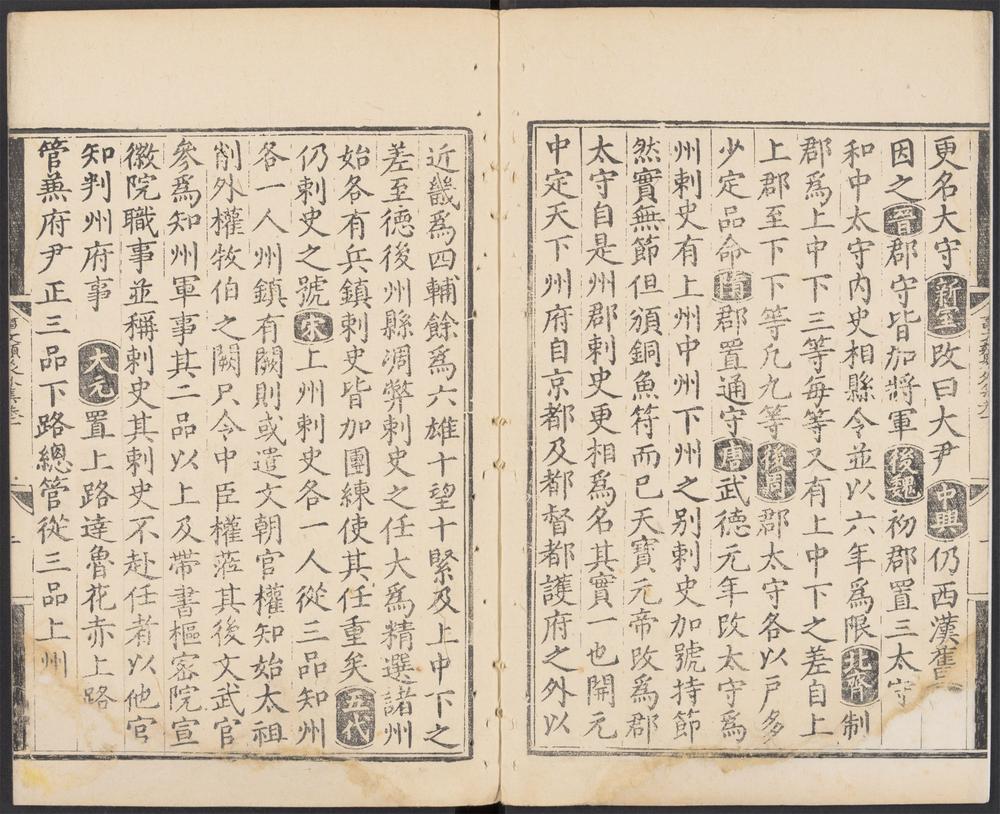 更名大守新室改曰大尹中興仍西漢舊
因之晉郡守皆加將軍後魏初郡置三太守
和中太守内史相縣令並以六年爲限北齊制
郡爲上中下三等每等又有上中下之差自上
上郡至下下等凡九等後周郡太守各以戶多
少定品命隋郡置通守唐武德元年改太守爲
州刺史有上州中州下州之别刺史加號持節
然實無節但頒銅魚符而已天寶元帝改爲郡
太守自是州郡刺史更相爲名其實一也開元
中定天下州府自京都及都督都護府之外以
近畿爲四輔餘爲六雄十望十緊及上中下之
差至德後州縣凋弊刺史之任大爲精選諸州
始各有兵鎮刺史皆加團練使其任重矣五代
仍刺史之號宋上州刺史各一人從三品知州
各一人州鎮有闕則或遣文朝官權知始太祖
削外權牧伯之闕只令中臣權蒞其後文武官
參爲知州軍事其二品以上及帶書樞密院宣
徽院職事並稱刺史其刺史不赴任者以他官
知判州府事大元置上路達魯花赤上路
管兼府尹正三品下路總管從三品上州